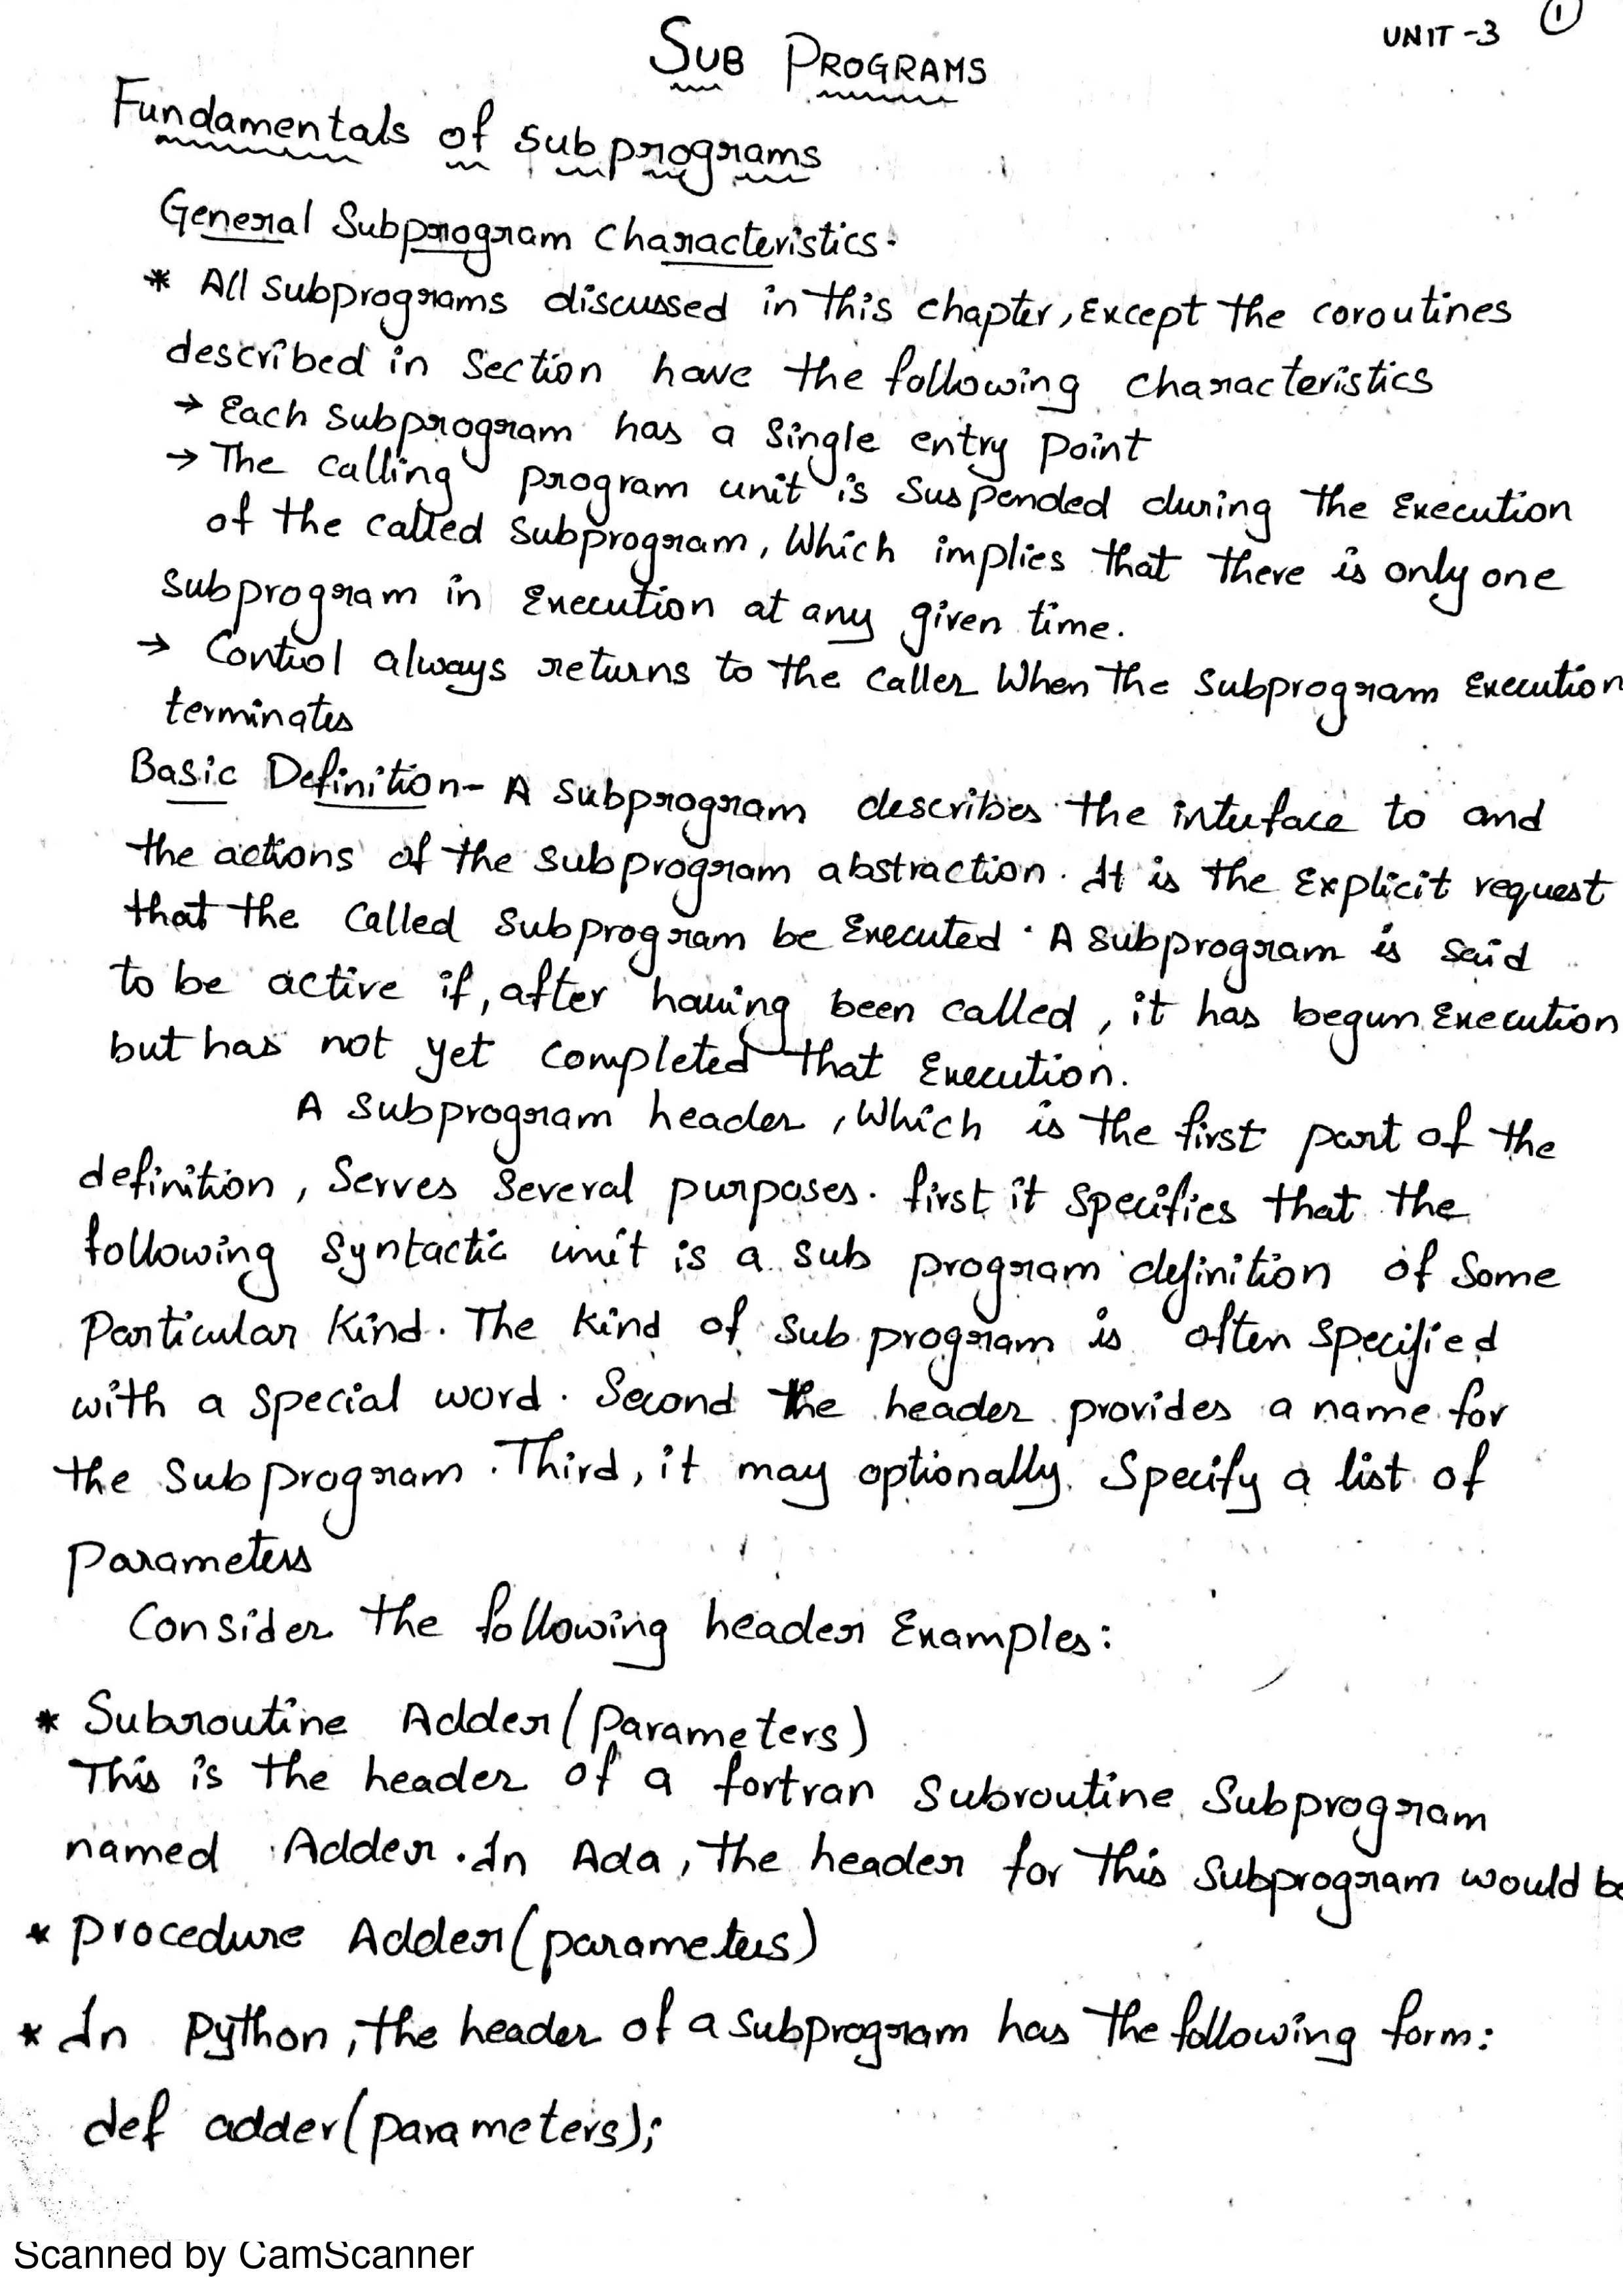 UNIT-3 1
SUB PROGRAMS
Fundamentals of subprograms
General Subprogram Characteristics.
* All subprograms discussed in this chapter, Except the coroutines
described in Section have the following characteristics
→ Each subprogram has a single entry point
→ The calling program unit is suspended during the Execution
of the called subprogram, Which implies that there is only one
subprogram in Execution at any given time.
→ Control always returns to the caller When the subprogram execution
terminates
Basic Definition- A subprogram describes the interface to and
the actions of the subprogram abstraction. It is the Explicit request
that the called subprogram be Executed. A subprogram is said
to be active if, after having been called, it has begun Execution
but has not yet completed that Execution.
A subprogram header, Which is the first part of the
definition, Serves Several purposes. first it specifies that the
following syntactic unit is a sub program definition of some
Particular Kind. The kind of sub program is often specified
with a special word. Second the header provides a name for
the subprogram. Third, it may optionally. Specify a list of
Parameters
Consider the following header Examples:
* Subroutine Adder(parameters)
This is the header of a fortran Subroutine Subprogram
named Adder. In Ada, the header for this Subprogram would be
* procedure Adder(parameters)
* In Python, the header of a subprogram has the following form:
def adder(parameters);
Scanned by CamScanner